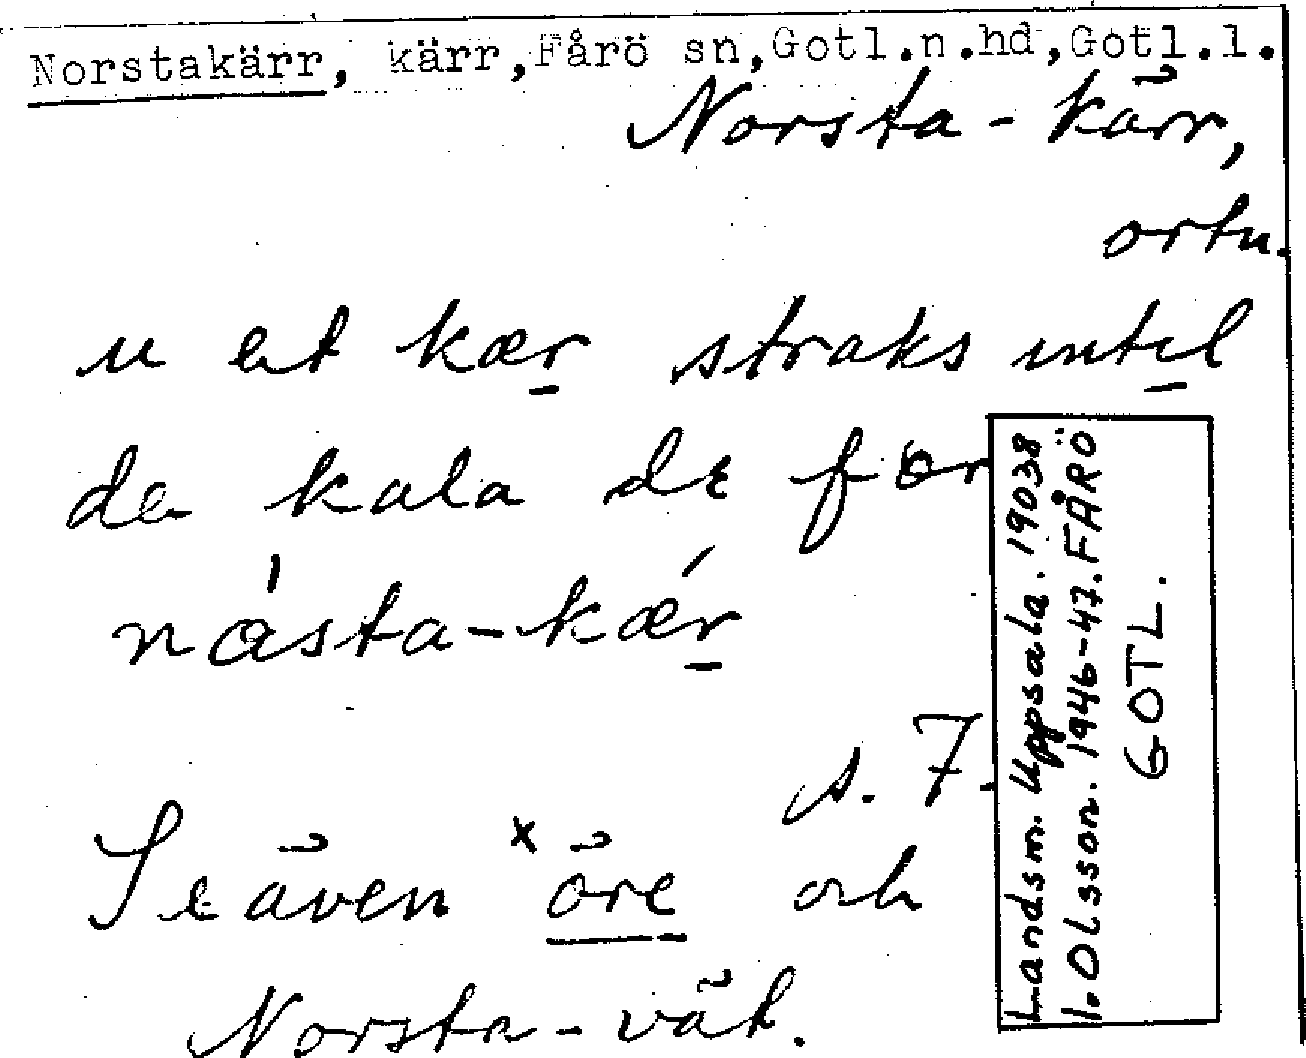 Norstakärr, kärr, Fårö sn, Gotl.n.hd, Gotl.l.
Norsta-kärr,
ortn.
u et kær straks intel
da kala dɛ før
násta-kǽr
s. 7.
Se även ˣöre och
Norsta-vät.
Landsm. Uppsala. 19038
I. Olsson. 1946-47. FÅRÖ
GOTL.